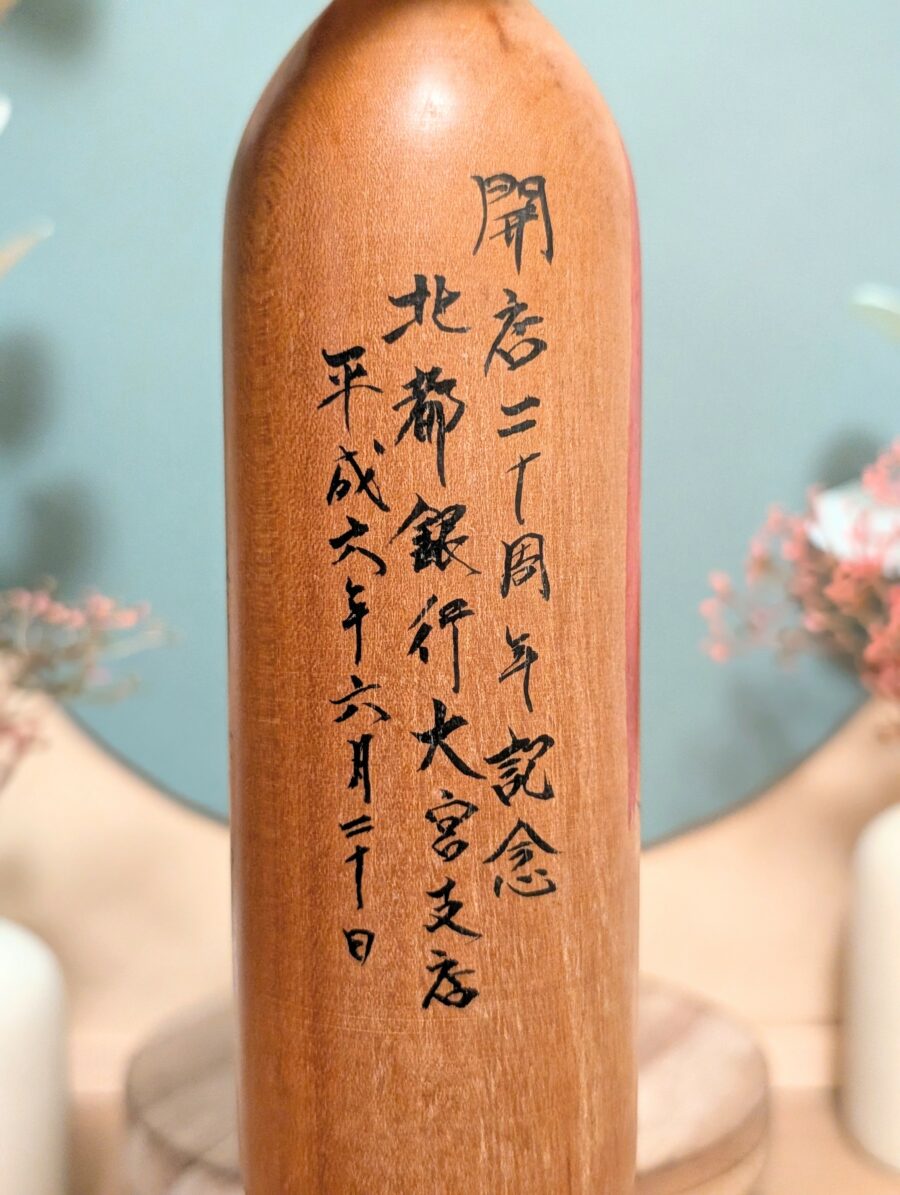 開店二十周年記念
北都銀行大宮支店
平成六年六月二十日